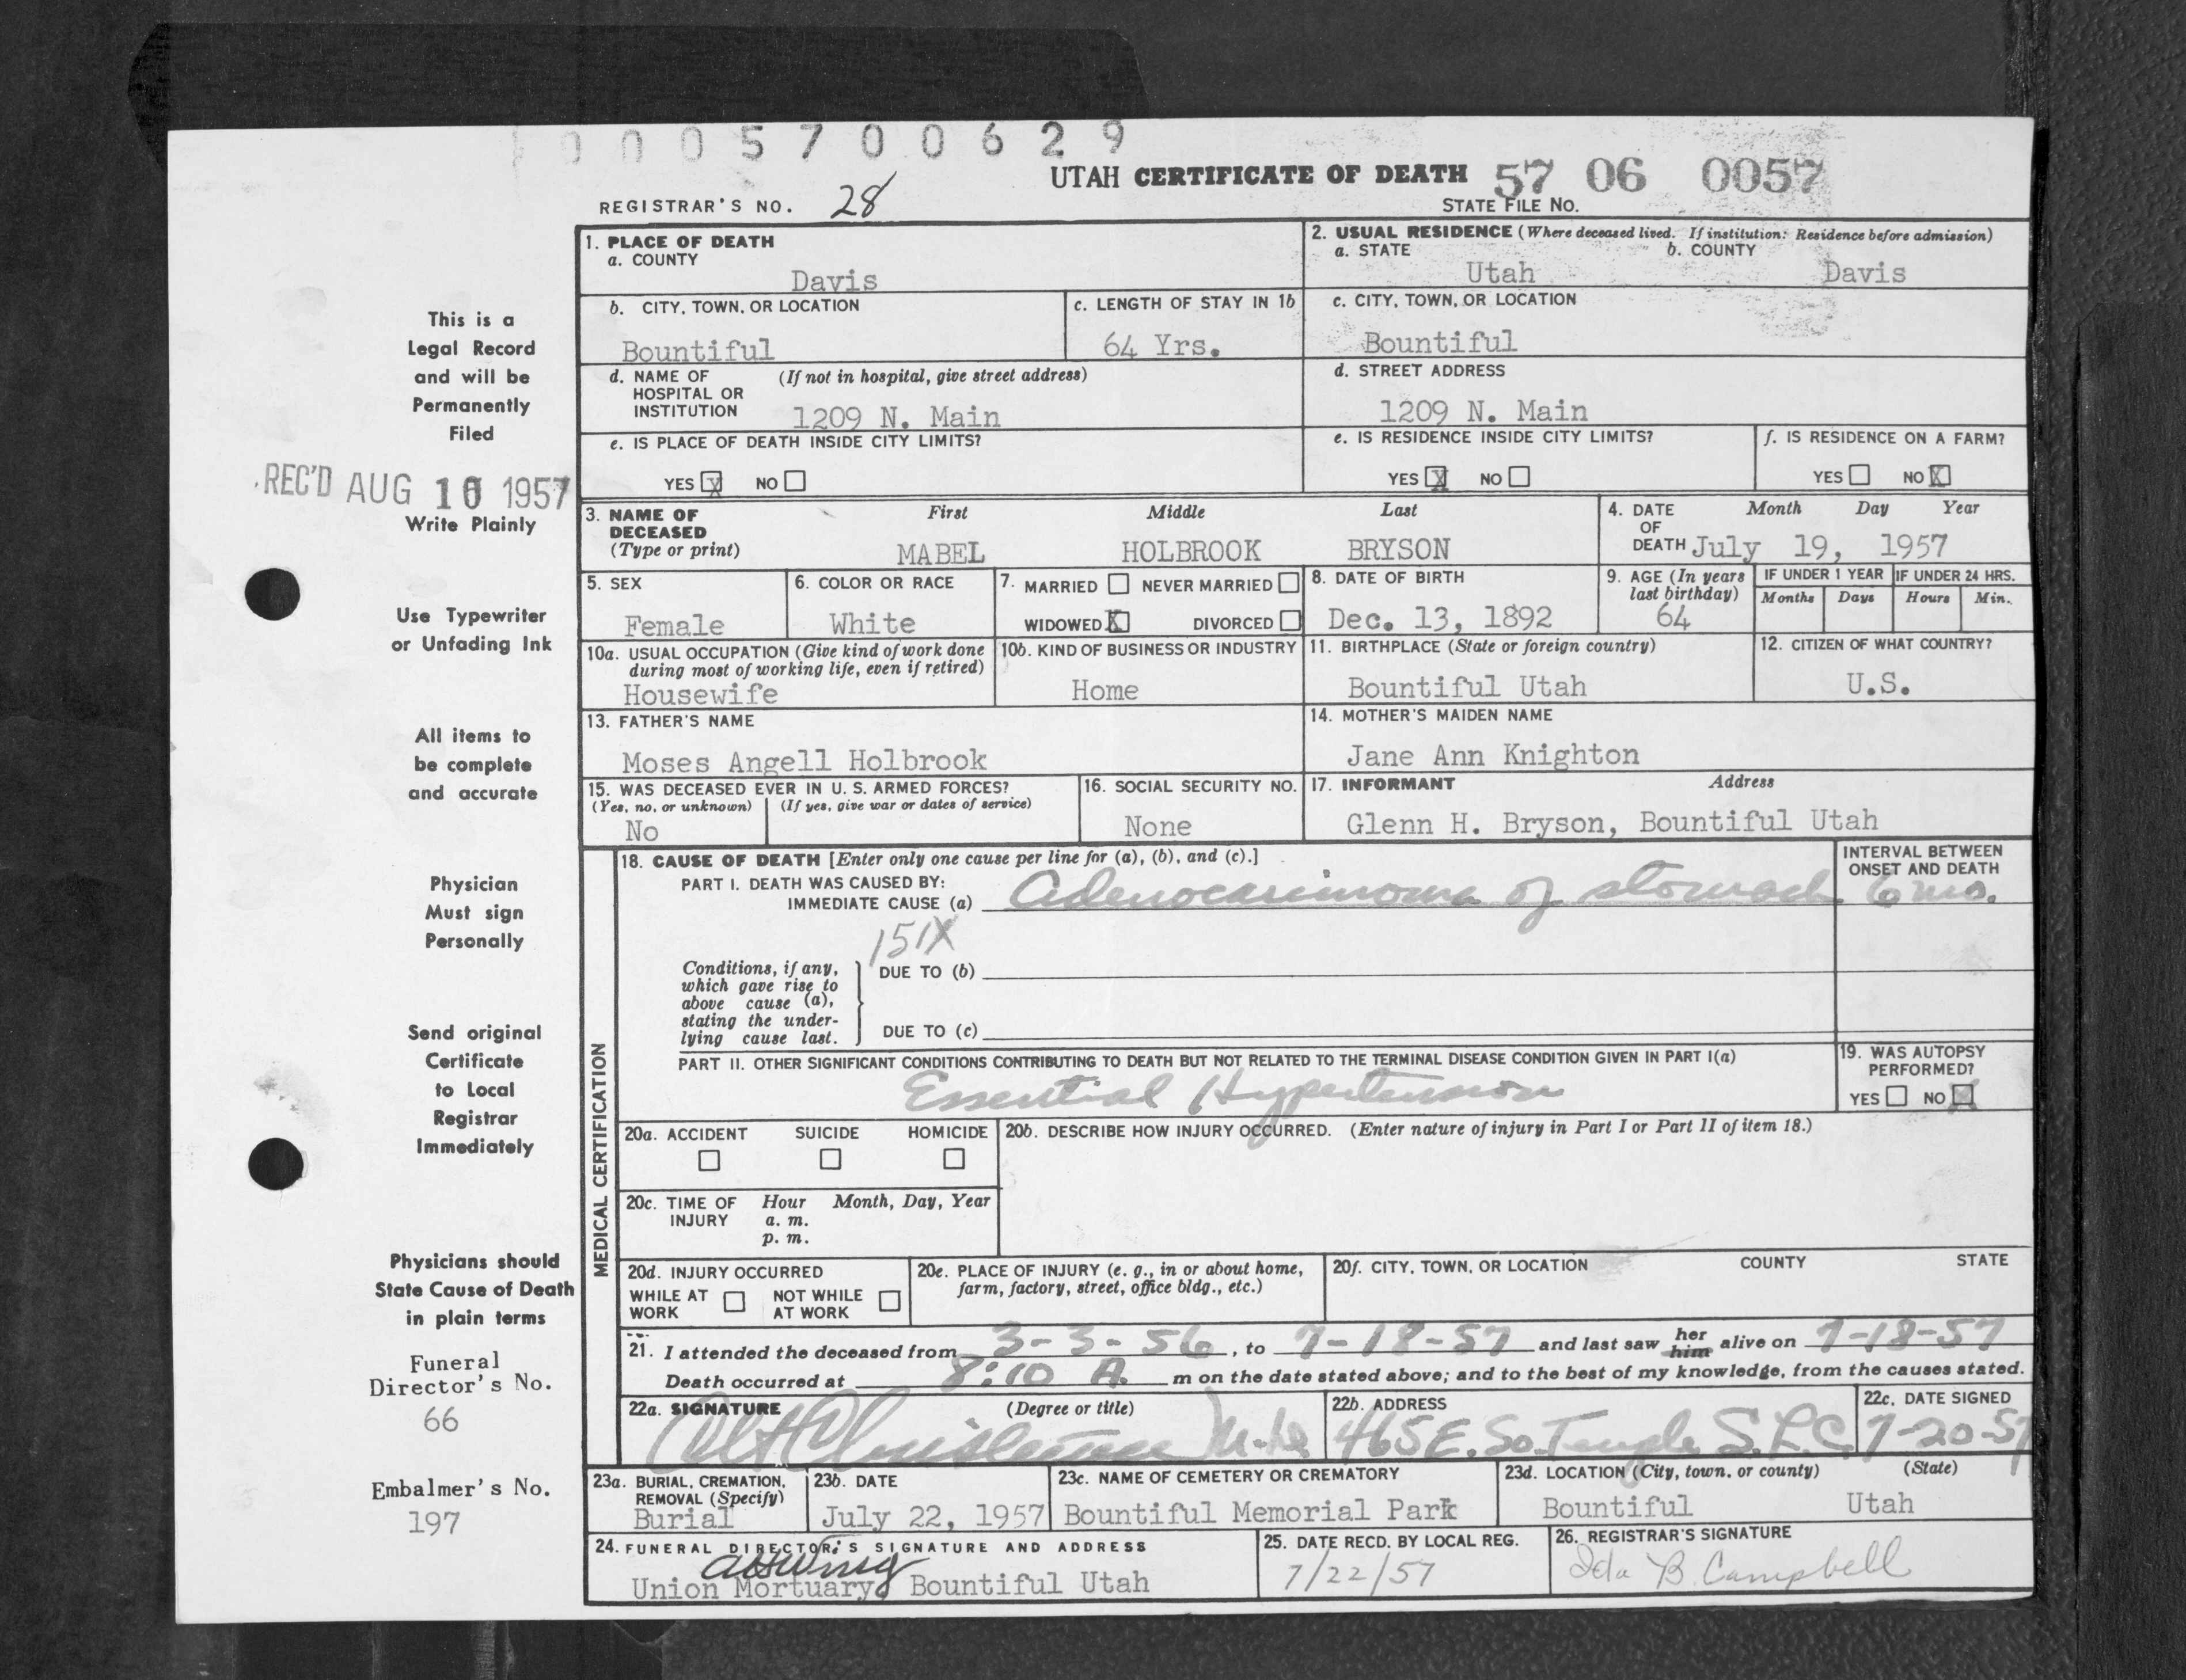 0 0 0 5 7 0 0 6 2 9
UTAH CERTIFICATE OF DEATH 57 06 0057
REGISTRAR'S NO. 28 STATE FILE NO.
This is a
Legal Record
and will be
Permanently
Filed
REC'D AUG 10 1957
Write Plainly
Use Typewriter
or Unfading Ink
All items to
be complete
and accurate
Physician
Must sign
Personally
Send original
Certificate
to Local
Registrar
Immediately
Physicians should
State Cause of Death
in plain terms
Funeral
Director's No.
66
Embalmer's No.
197
1. PLACE OF DEATH
a. COUNTY
Davis
2. USUAL RESIDENCE (Where deceased lived. If institution: Residence before admission)
a. STATE b. COUNTY
Utah Davis
b. CITY, TOWN, OR LOCATION
Bountiful
c. LENGTH OF STAY IN 1b
64 Yrs.
c. CITY, TOWN, OR LOCATION
Bountiful
d. NAME OF (If not in hospital, give street address)
HOSPITAL OR
INSTITUTION 1209 N. Main
d. STREET ADDRESS
1209 N. Main
e. IS PLACE OF DEATH INSIDE CITY LIMITS?
YES X NO
e. IS RESIDENCE INSIDE CITY LIMITS?
YES X NO
f. IS RESIDENCE ON A FARM?
YES NO X
3. NAME OF First Middle Last
DECEASED
(Type or print) MABEL HOLBROOK BRYSON
4. DATE Month Day Year
OF
DEATH July 19, 1957
5. SEX
Female
6. COLOR OR RACE
White
7. MARRIED NEVER MARRIED
WIDOWED X DIVORCED
8. DATE OF BIRTH
Dec. 13, 1892
9. AGE (In years
last birthday)
64
IF UNDER 1 YEAR IF UNDER 24 HRS.
Months Days Hours Min.
10a. USUAL OCCUPATION (Give kind of work done
during most of working life, even if retired)
Housewife
10b. KIND OF BUSINESS OR INDUSTRY
Home
11. BIRTHPLACE (State or foreign country)
Bountiful Utah
12. CITIZEN OF WHAT COUNTRY?
U.S.
13. FATHER'S NAME
Moses Angell Holbrook
14. MOTHER'S MAIDEN NAME
Jane Ann Knighton
15. WAS DECEASED EVER IN U. S. ARMED FORCES?
(Yes, no, or unknown) (If yes, give war or dates of service)
No
16. SOCIAL SECURITY NO.
None
17. INFORMANT Address
Glenn H. Bryson, Bountiful Utah
MEDICAL CERTIFICATION
18. CAUSE OF DEATH [Enter only one cause per line for (a), (b), and (c).]
PART I. DEATH WAS CAUSED BY:
IMMEDIATE CAUSE (a) Adenocarcinoma of stomach
INTERVAL BETWEEN
ONSET AND DEATH
6 mo.
151X
Conditions, if any,
which gave rise to
above cause (a),
stating the under-
lying cause last.
DUE TO (b)
DUE TO (c)
PART II. OTHER SIGNIFICANT CONDITIONS CONTRIBUTING TO DEATH BUT NOT RELATED TO THE TERMINAL DISEASE CONDITION GIVEN IN PART I(a)
Essential Hypertension
19. WAS AUTOPSY
PERFORMED?
YES NO X
20a. ACCIDENT SUICIDE HOMICIDE
20b. DESCRIBE HOW INJURY OCCURRED. (Enter nature of injury in Part I or Part II of item 18.)
20c. TIME OF Hour Month, Day, Year
INJURY a. m.
p. m.
20d. INJURY OCCURRED
WHILE AT NOT WHILE
WORK AT WORK
20e. PLACE OF INJURY (e. g., in or about home,
farm, factory, street, office bldg., etc.)
20f. CITY, TOWN, OR LOCATION COUNTY STATE
21. I attended the deceased from 3-3-56, to 7-18-57 and last saw her him alive on 7-18-57
Death occurred at 8:10 A. m on the date stated above; and to the best of my knowledge, from the causes stated.
22a. SIGNATURE (Degree or title)
M.D.
22b. ADDRESS
465 E. So. Temple S.L.C.
22c. DATE SIGNED
7-20-57
23a. BURIAL, CREMATION,
REMOVAL (Specify)
Burial
23b. DATE
July 22, 1957
23c. NAME OF CEMETERY OR CREMATORY
Bountiful Memorial Park
23d. LOCATION (City, town, or county) (State)
Bountiful Utah
24. FUNERAL DIRECTOR'S SIGNATURE AND ADDRESS
Union Mortuary Bountiful Utah
25. DATE RECD. BY LOCAL REG.
7/22/57
26. REGISTRAR'S SIGNATURE
Ida B. Campbell